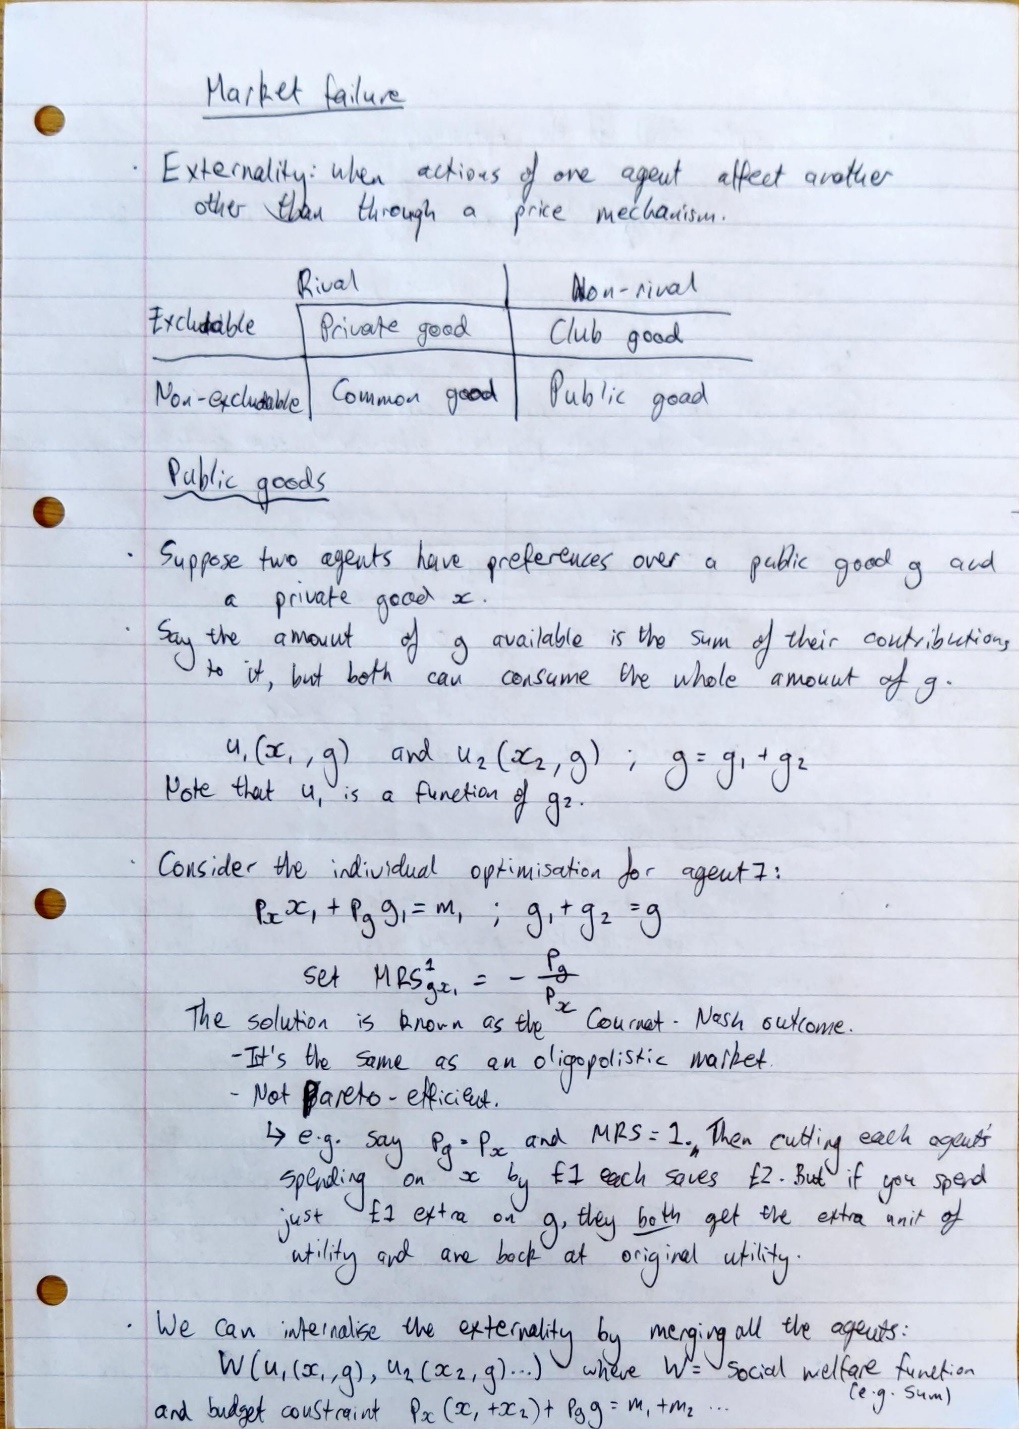 Market failure
· Externality: when actions of one agent affect another
other than through a price mechanism.
Rival Non-rival
Excludable Private good Club good
Non-excludable Common good Public good
Public goods
· Suppose two agents have preferences over a public good g and
a private good x.
· Say the amount of g available is the sum of their contributions
to it, but both can consume the whole amount of g.
u₁(x₁, g) and u₂(x₂, g) ; g = g₁ + g₂
Note that u₁ is a function of g₂.
· Consider the individual optimisation for agent 1:
Pₓx₁ + P_g g₁ = m₁ ; g₁ + g₂ = g
set MRS¹_gx₁ = - P_g/Pₓ
The solution is known as the Cournot-Nash outcome.
- It's the same as an oligopolistic market.
- Not Pareto-efficient.
↳ e.g. say P_g = Pₓ and MRS = 1. Then cutting each agents'
spending on x by £1 each saves £2. But if you spend
just £1 extra on g, they both get the extra unit of
utility and are back at original utility.
· We can internalise the externality by merging all the agents:
W(u₁(x₁, g), u₂(x₂, g)...) where W = social welfare function
(e.g. sum)
and budget constraint Pₓ(x₁ + x₂) + P_g g = m₁ + m₂ ...